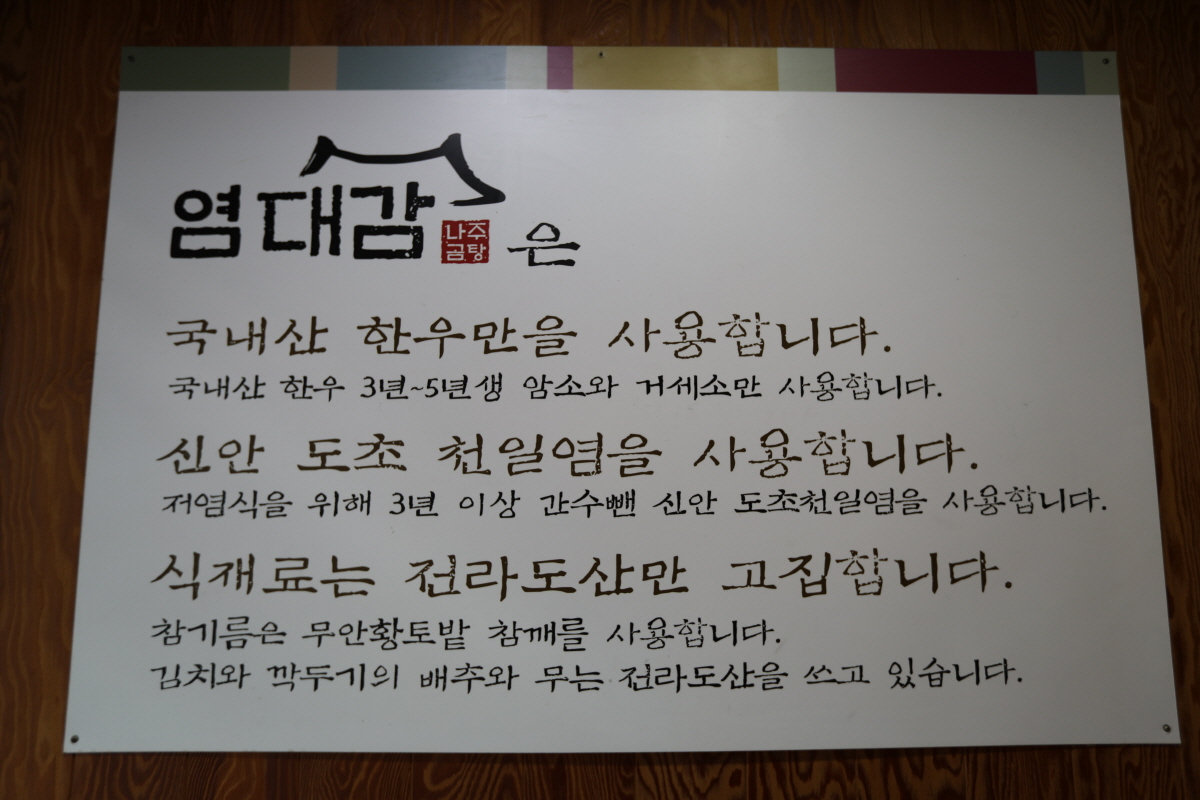 염대감 나주곰탕 은
국내산 한우만을 사용합니다.
국내산 한우 3년~5년생 암소와 거세소만 사용합니다.
신안 도초 천일염을 사용합니다.
저염식을 위해 3년 이상 간수뺀 신안 도초천일염을 사용합니다.
식재료는 전라도산만 고집합니다.
참기름은 무안황토밭 참깨를 사용합니다.
김치와 깍두기의 배추와 무는 전라도산을 쓰고 있습니다.